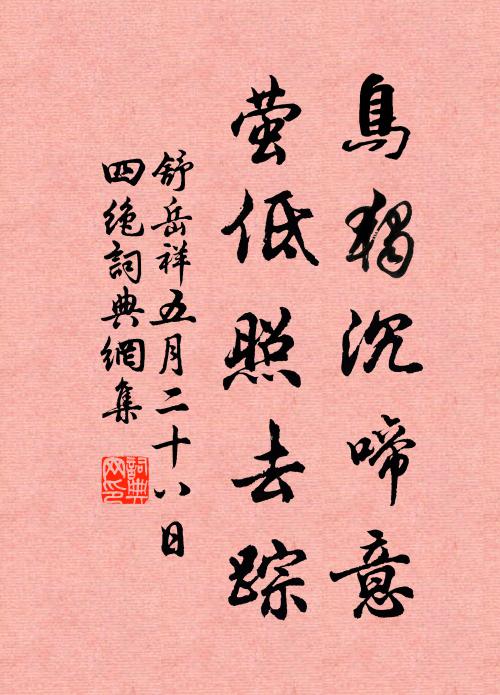 鳥獨沉啼意
萤低照去踪
舒岳祥五月二十八日
四绝詞典網集
詞典网印